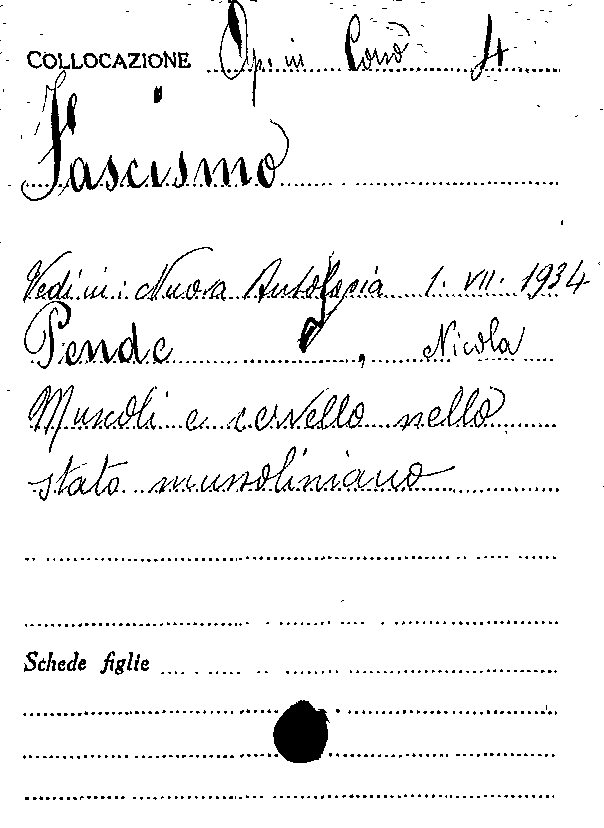 COLLOCAZIONE Op. in 4
Fascismo
Vedi in: Nuova Antologia 1. VII. 1934
Pende, Nicola
Muscoli e cervello nello
stato mussoliniano
Schede figlie